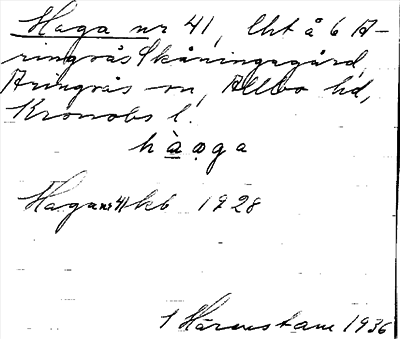 Haga nr 41, lht å 6 A-
ringsås Skåningsgård,
Aringsås sn, Allbo hd,
Kronobs l.
hàọga
Haga nr 41 kb 1928
1 Härenstam 1936